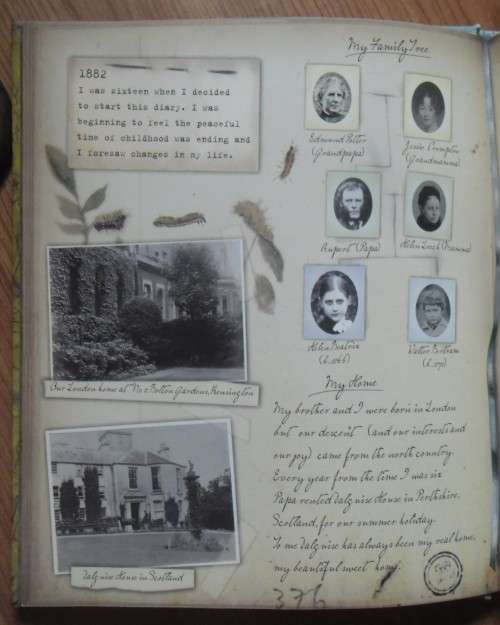 1882
I was sixteen when I decided
to start this diary. I was
beginning to feel the peaceful
time of childhood was ending and
I foresaw changes in my life.
My Family Tree
Edmund Potter
(Grandpapa)
Jessie Crompton
(Grandmamma)
Rupert (Papa)
Helen Leech (Mamma)
Helen Beatrix
(b.1866)
Walter Bertram
Our London home at No 2 Bolton Gardens, Kensington
Dalguise House in Scotland
My Home
My brother and I were born in London
but our descent (and our interest and
our joy) came from the north country.
Every year from the time I was six
Papa rented Dalguise House in Perthshire,
Scotland, for our summer holiday.
To me Dalguise has always been my real home,
my beautiful sweet home.